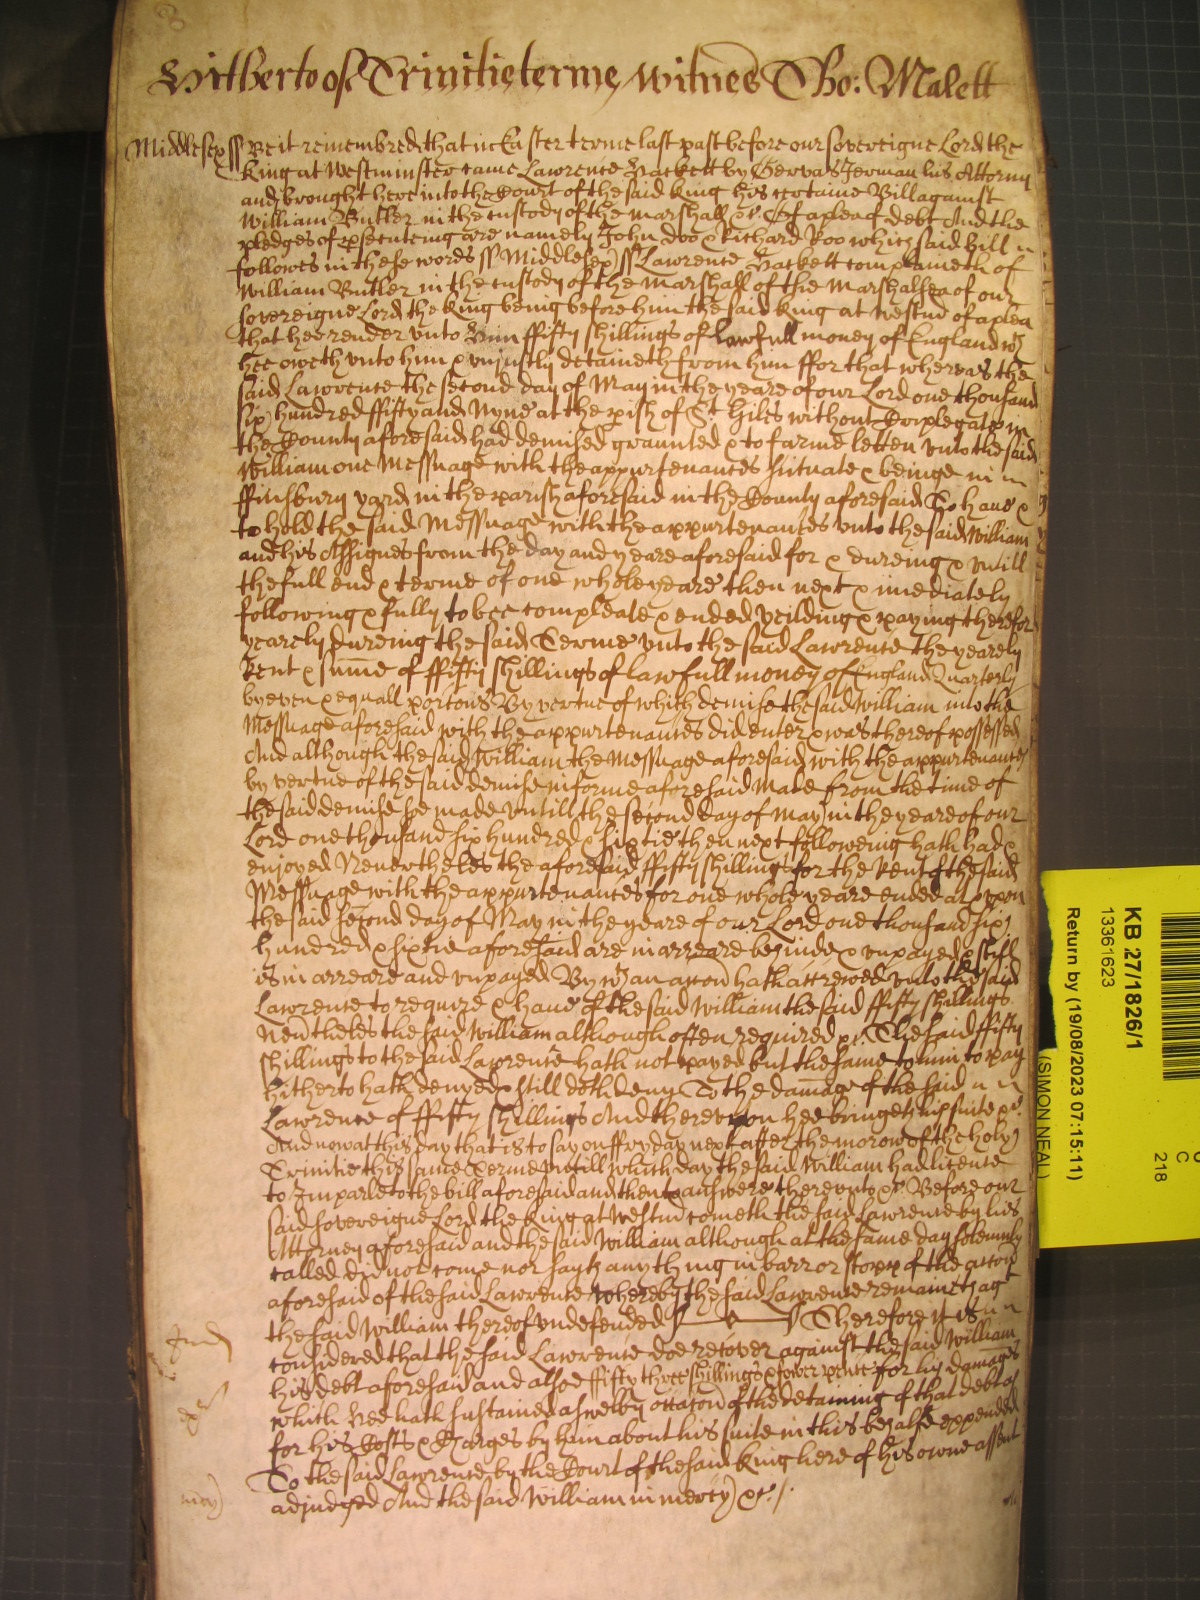 Hitherto of Trinitie terme Witnes Tho: Malett
Middlesex ss Be it remembred that in Easter terme last past before our Sovereigne Lord the
King at Westminster came Lawrence Hackett by Gervas Jerman his Attorny
and brought here into the Court of the said King his certaine Bill against
William Butler in the custody of the Marshall &c. Of a plea of debt And the
pledges of prosecuteing are namely John Doo & Richard Roo which said Bill
followes in these words ss Middlesex ss Lawrence Hackett complaineth of
William Butler in the custody of the Marshall of the Marshalsea of our
Sovereigne Lord the King being before him the said King at Westm of a plea
that hee render unto him ffifty shillings of lawfull money of England wch
hee oweth unto him & unjustly detaineth from him ffor that whereas the
said Lawrence the second day of May in the yeare of our Lord one thousand
six hundred ffifty and Nyne at the pish of St Giles without Criplegate in
the County aforesaid had demised graunted & to farme letten unto the said
William one Messuage with the appurtenances scituate & beinge in
ffinsbury yard in the parish aforesaid in the County aforesaid To have &
to hold the said Messuage with the appurtenances unto the said William
and his Assignes from the day and yeare aforesaid for & dureing & untill
the full end & terme of one whole yeare then next & imediately
following & fully to bee compleate & ended yeilding & paying therefor
yearely dureing the said Terme unto the said Lawrence the yearely
Rent & summe of ffifty shillings of lawfull money of England Quarterly
by even & equall portons By vertue of which demise the said William into the
Messuage aforesaid with the appurtenances did enter & was thereof possessed
And although the said William the Messuage aforesaid with the appurtenances
by vertue of the said demise in forme aforesaid made from the time of
the said demise soe made untill the second day of May in the yeare of our
Lord one thousand six hundred & sixtie then next followeing hath had &
enjoyed Nevertheles the aforesaid ffifty shillings for the Rent of the said
Messuage with the appurtenances for one whole yeare ended at & upon
the said second day of May in the yeare of our Lord one thousand six
hundred & sixtie aforesaid are in arreare behinde & unpayed & still
is in arreare and unpayed By wch an acton hath accrewed unto the said
Lawrence to require & have of the said William the said ffifty shillings
Nevtheles the said William although often required &c. The said ffifty
shillings to the said Lawrence hath not payed but the same to him to pay
hitherto hath denyed & still doth deny To the damage of the said
Lawrence of ffifty shillings And thereupon hee bringeth his suite &c
And now at this day that is to say on ffryday next after the morow of the holy
Trinitie this same Terme untill which day the said William had licence
to Imparle to the bill aforesaid and then to answere thereunto &c. Before our
said Sovereigne Lord the King at Westm cometh the said Lawrence by his
Attorney aforesaid and the said William although at the same day solemnly
called did not come nor sayth any thing in barr or stopp of the acton
aforesaid of the said Lawrence whereby the said Lawrence remaineth agt
the said William thereof undefended Therefore it is
considered that the said Lawrence doe recover against the said William
his debt aforesaid and alsoe ffifty three shillings & fower pence for his damages
which hee hath sustained aswell by occasion of the detaining of that debt as
for his Costs & Charges by him about his suite in this behalfe expended
To the said Lawrence by the Court of the said King here of his owne assent
adjudged And the said William in mercy &c.
Jud
mcy
KB 27/1826/1
13361623
Return by (19/08/2023 07:15:11)
(SIMON NEAL)
C
218